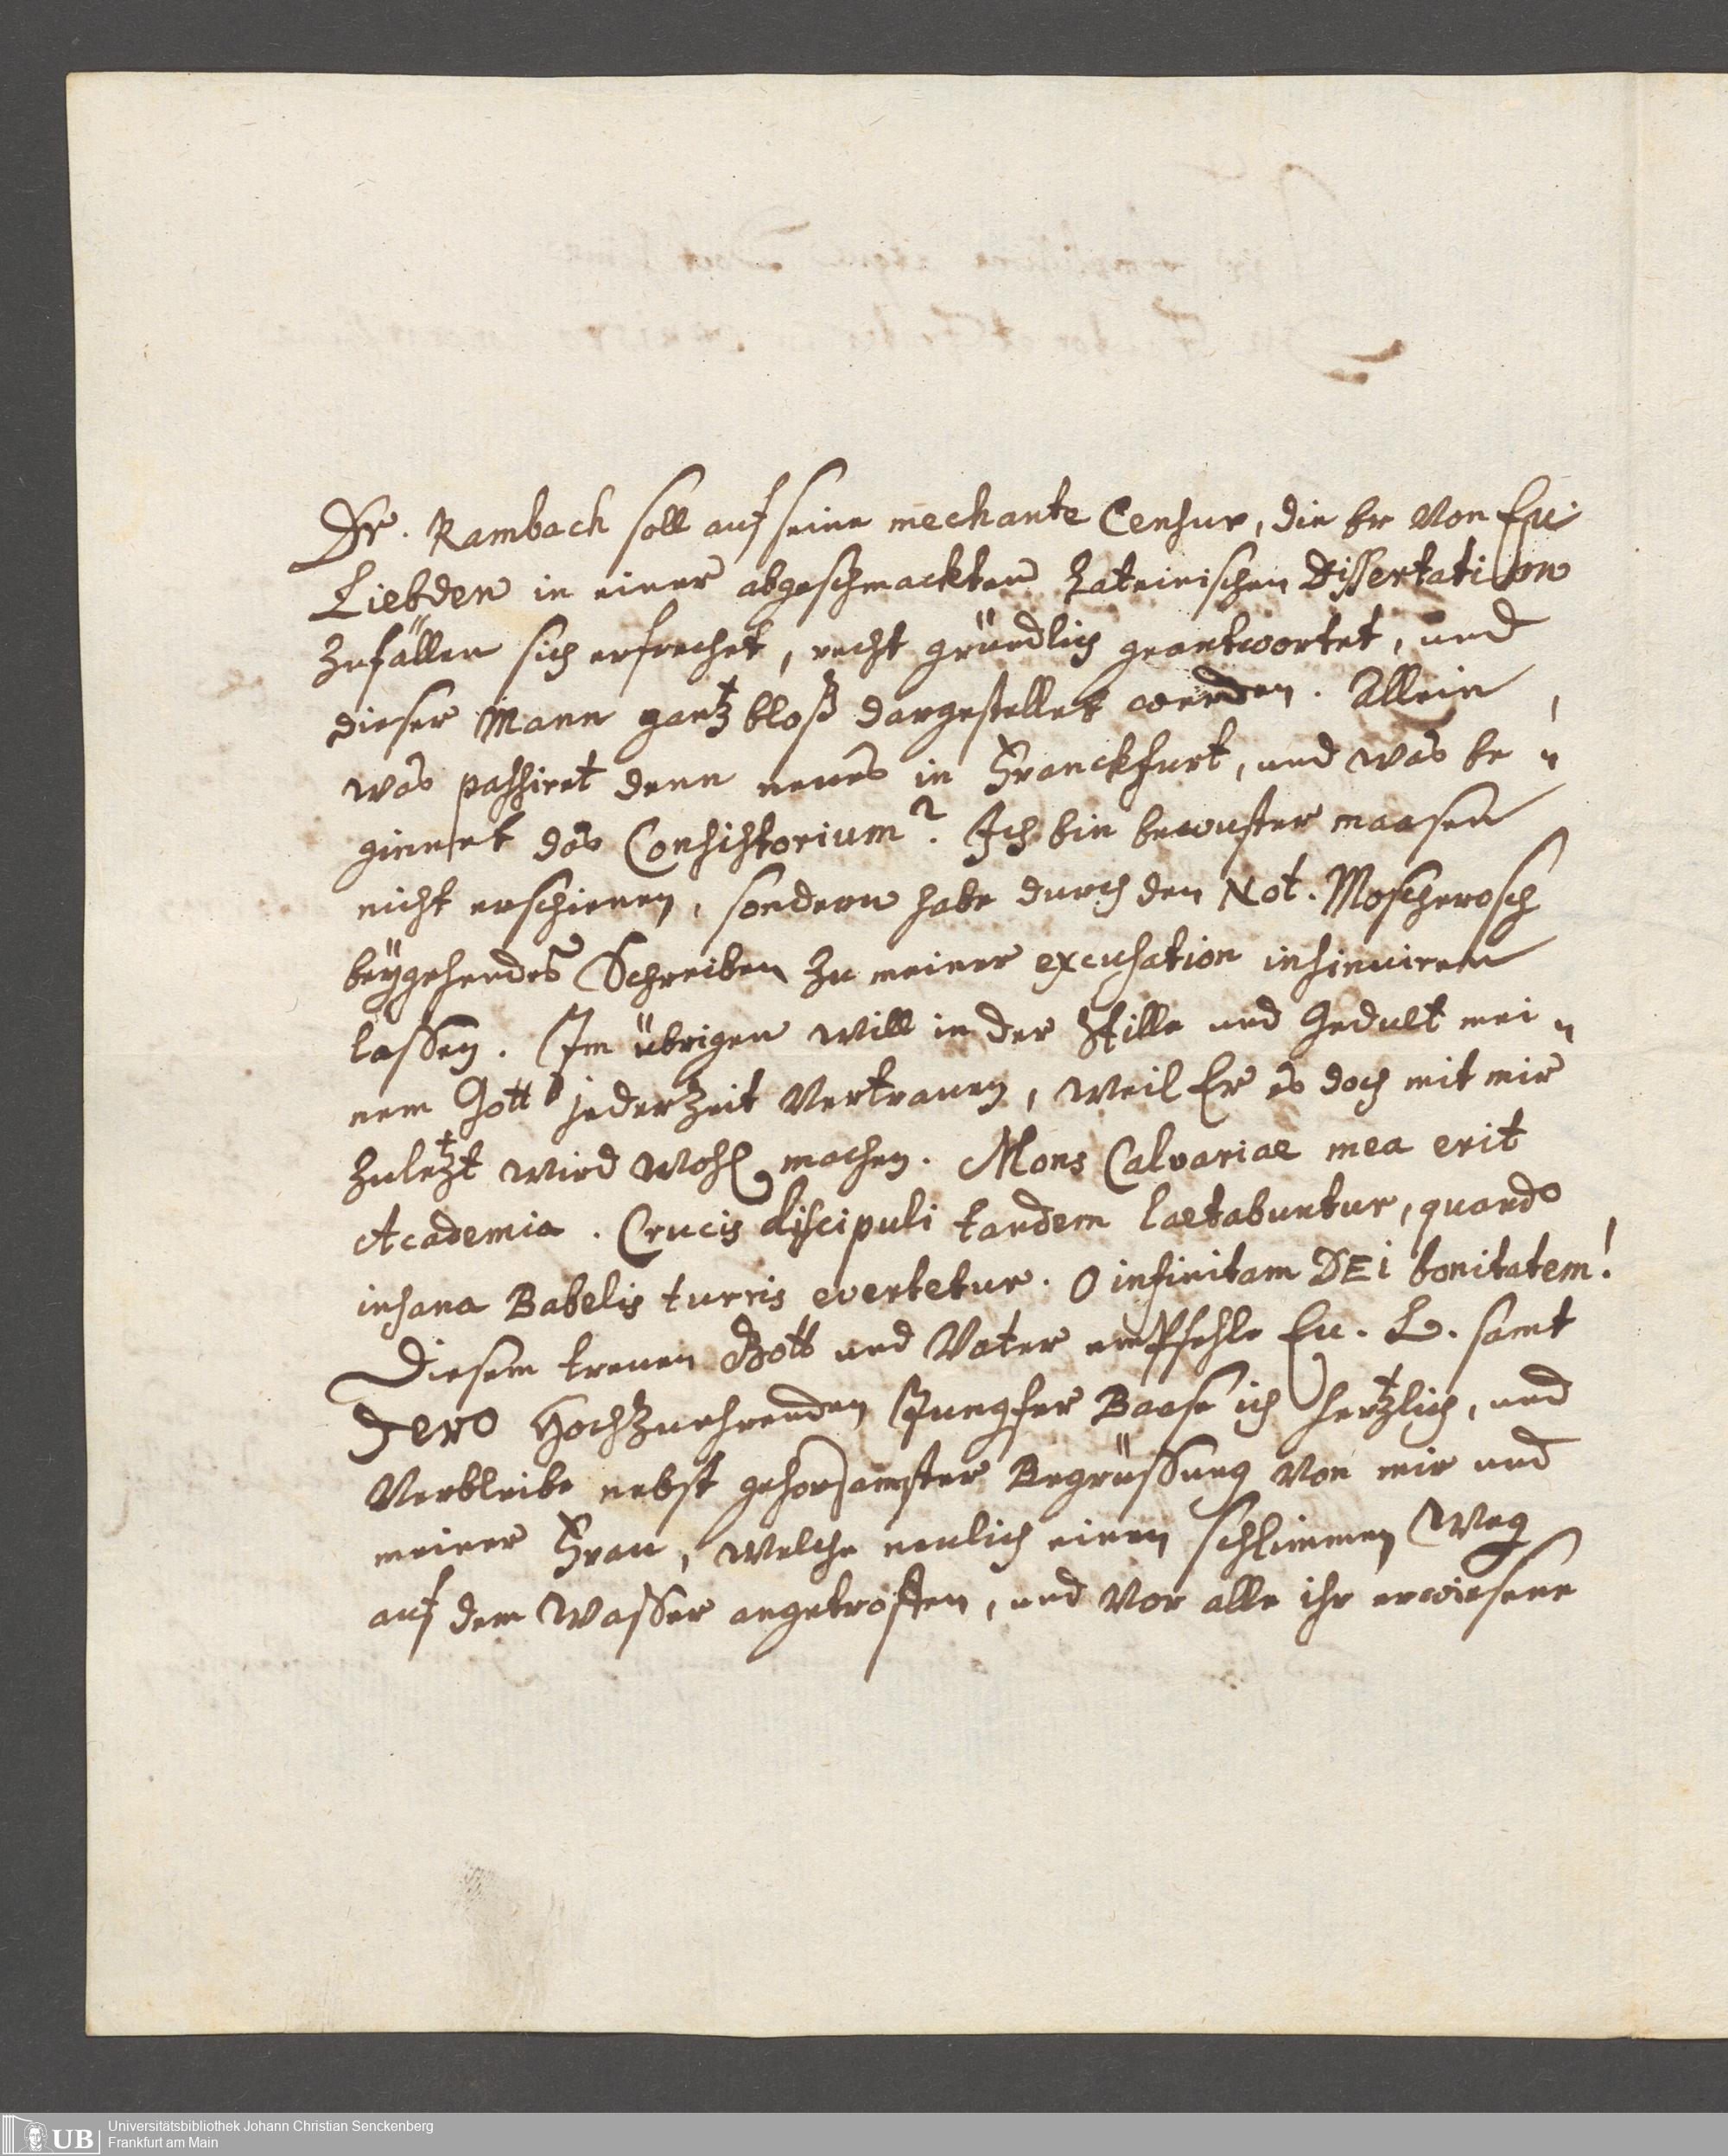 Dr. Rambach soll auf seine mechante Censur, die er von Eu.
Liebden in einer abgeschmackten Lateinischen Dissertation
zufällen sich erfrechet, recht gründlich geantwortet, und
dieser Mann gantz bloß dargestellet werden. Allein
was passiret denn neues in Franckfurt, und was be-
ginnet das Consistorium? Ich bin bewuster maasen
nicht erschienen, sondern habe durch den Not. Moscherosch
beÿgehendes Schreiben zu meiner excusation insinuiren
lassen. Im übrigen will in der Stille und Gedult mei-
nem Gott jederzeit vertrauen, weil Er es doch mit mir
zuletzt wird wohl machen. Mons Calvariae mea erit
Academia. Crucis discipuli tandem laetabuntur, quando
insana Babelis turris evertetur. O infinitam DEI bonitatem!
Diesem treuen Gott und Vater empfehle Eu. L. samt
Dero Hochzuehrenden Jungfer Baase ich hertzlich, und
verbleibe nebst gehorsamster Begrüssung von mir und
meiner Frau, welche neulich einen schlimmen Weg
auf dem Wasser angetroffen, und vor alle ihr erwiesene
Universitätsbibliothek Johann Christian Senckenberg
Frankfurt am Main
UB